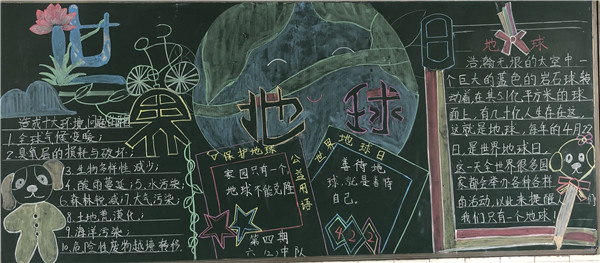 世界地球
造成十大环境问题
1.全球气候变暖;
2.臭氧层的损耗与破坏;
3.生物多样性减少;
4.酸雨蔓延;5.水污染;
6.森林锐减;7.大气污染;
8.土地荒漠化;
9.海洋污染;
10.危险性废物越境转移.
保护地球
公益用语
家园只有一个
地球不能克隆
第四期
六(2)中队
世界地球日
善待地
球.就是善待
自己。
4 2 2
地球
浩瀚无垠的太空中一
个巨大的蓝色的岩石球转
动着,在其5.1亿平方米的球
面上,有几十亿人生存在这
这就是地球,每年的4月22
日,是世界地球日。
这一天全世界很多国
家都会举办各种各样
的活动,以此来提醒人们
我们只有一个地球!